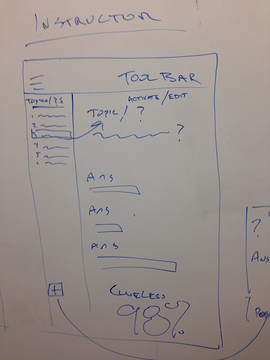 INSTRUCTOR
TOOLBAR
TOPICS/?S
ACTIVATE/EDIT
TOPIC/?
1
2
3
4
5
6
?
Ans
Ans
Ans
+
CLUELESS
98%
?
Ans